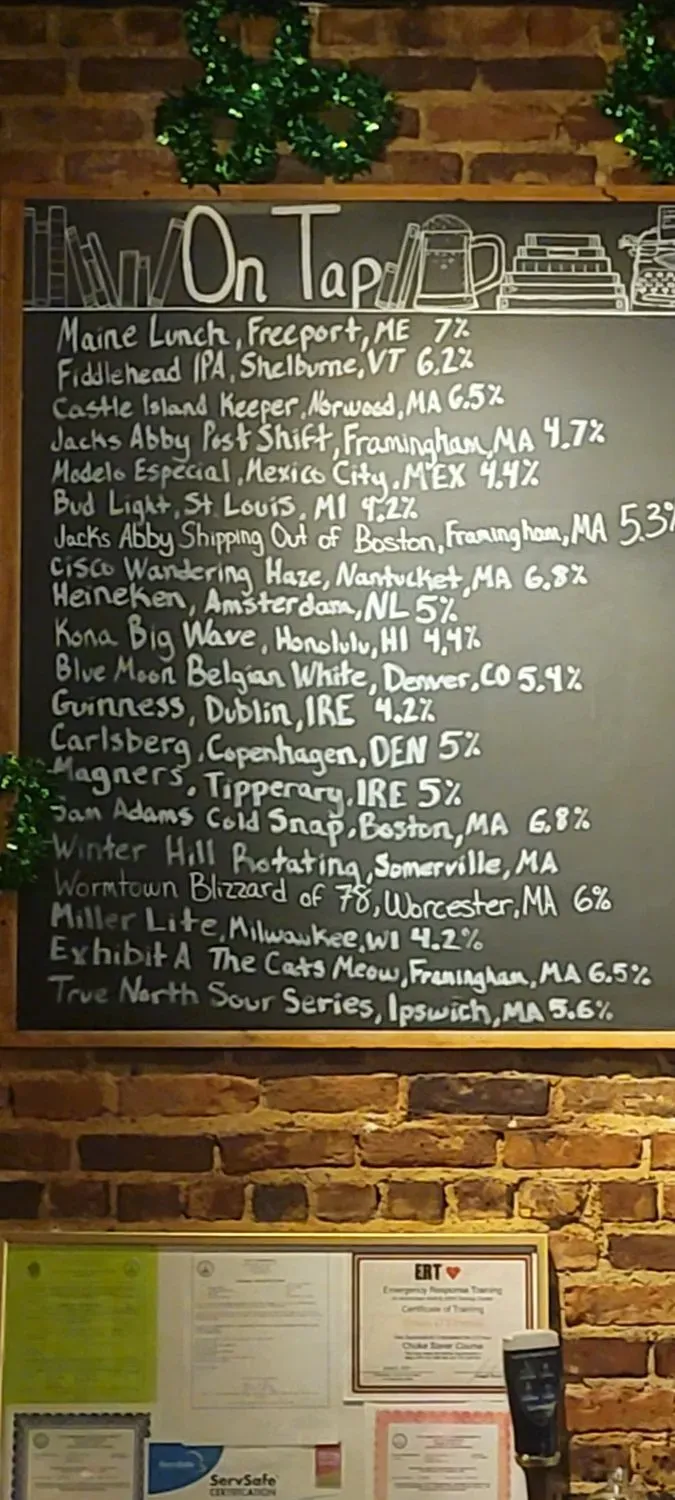 On Tap
Maine Lunch, Freeport, ME 7%
Fiddlehead IPA, Shelburne, VT 6.2%
Castle Island Keeper, Norwood, MA 6.5%
Jacks Abby Post Shift, Framingham, MA 4.7%
Modelo Especial, Mexico City, MEX 4.4%
Bud Light, St. Louis, MI 4.2%
Jacks Abby Shipping Out of Boston, Framingham, MA 5.3%
Cisco Wandering Haze, Nantucket, MA 6.8%
Heineken, Amsterdam, NL 5%
Kona Big Wave, Honolulu, HI 4.4%
Blue Moon Belgian White, Denver, CO 5.4%
Guinness, Dublin, IRE 4.2%
Carlsberg, Copenhagen, DEN 5%
Magners, Tipperary, IRE 5%
Sam Adams Cold Snap, Boston, MA 6.8%
Winter Hill Rotating, Somerville, MA
Wormtown Blizzard of 78, Worcester, MA 6%
Miller Lite, Milwaukee, WI 4.2%
Exhibit A The Cats Meow, Framingham, MA 6.5%
True North Sour Series, Ipswich, MA 5.6%
ERT
Emergency Response Training
Certificate of Training
Choke Saver Course
ServSafe
ServSafe
CERTIFICATION